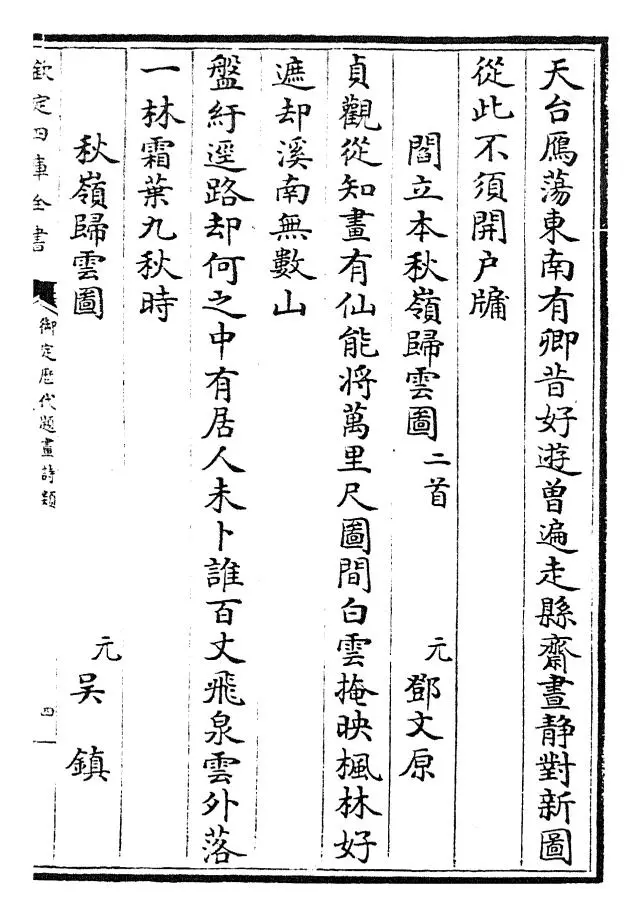 天台鴈蕩東南有卿昔好遊曾遍走縣齋晝靜對新圖
從此不須開戸牖
閻立本秋嶺歸雲圖 二首 元 鄧文原
貞觀從知畫有仙能將萬里尺圖間白雲掩映楓林好
遮却溪南無數山
盤紆逕路却何之中有居人未卜誰百丈飛泉雲外落
一林霜葉九秋時
秋嶺歸雲圖 元 吴鎮
欽定四庫全書 御定歷代題畫詩類 四